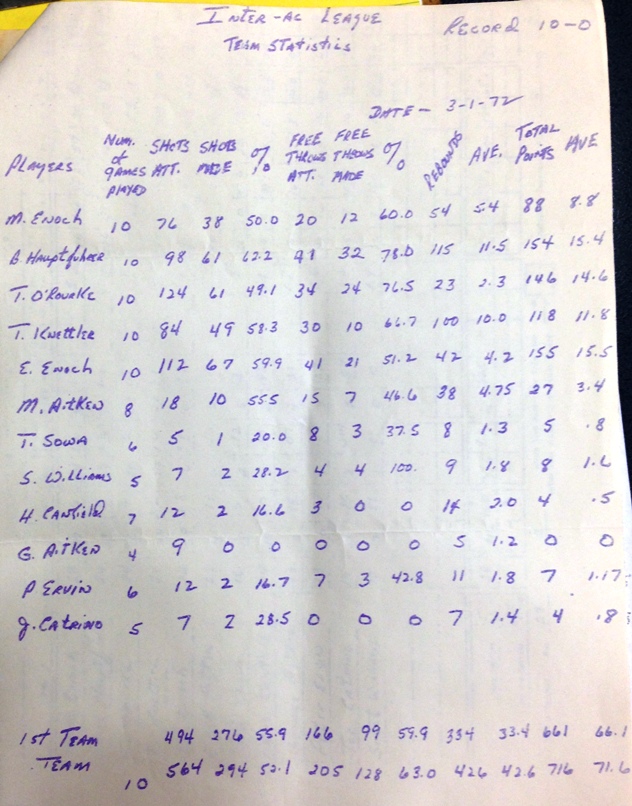 INTER-AC LEAGUE RECORD 10-0
TEAM STATISTICS
DATE - 3-1-72
PLAYERS NUM. of GAMES PLAYED SHOTS ATT. SHOTS MADE % FREE THROWS ATT. FREE THROWS MADE % REBOUNDS AVE. TOTAL POINTS AVE
M. ENOCH 10 76 38 50.0 20 12 60.0 54 5.4 88 8.8
B. Hauptfuhrer 10 98 61 62.2 41 32 78.0 115 11.5 154 15.4
T. O'ROURKE 10 124 61 49.1 34 24 76.5 23 2.3 146 14.6
T. Knettler 10 84 49 58.3 30 10 66.7 100 10.0 118 11.8
E. ENOCH 10 112 67 59.9 41 21 51.2 42 4.2 155 15.5
M. AITKEN 8 18 10 555 15 7 46.6 38 4.75 27 3.4
T. SOWA 6 5 1 20.0 8 3 37.5 8 1.3 5 .8
S. Williams 5 7 2 28.2 4 4 100. 9 1.8 8 1.6
H. CANfield 7 12 2 16.6 3 0 0 14 2.0 4 .5
G. AITKEN 4 9 0 0 0 0 0 5 1.2 0 0
P ERVIN 6 12 2 16.7 7 3 42.8 11 1.8 7 1.17
J. CATRINO 5 7 2 28.5 0 0 0 7 1.4 4 .8
1st TEAM 494 276 55.9 166 99 59.9 334 33.4 661 66.1
TEAM 10 564 294 52.1 205 128 63.0 426 42.6 716 71.6